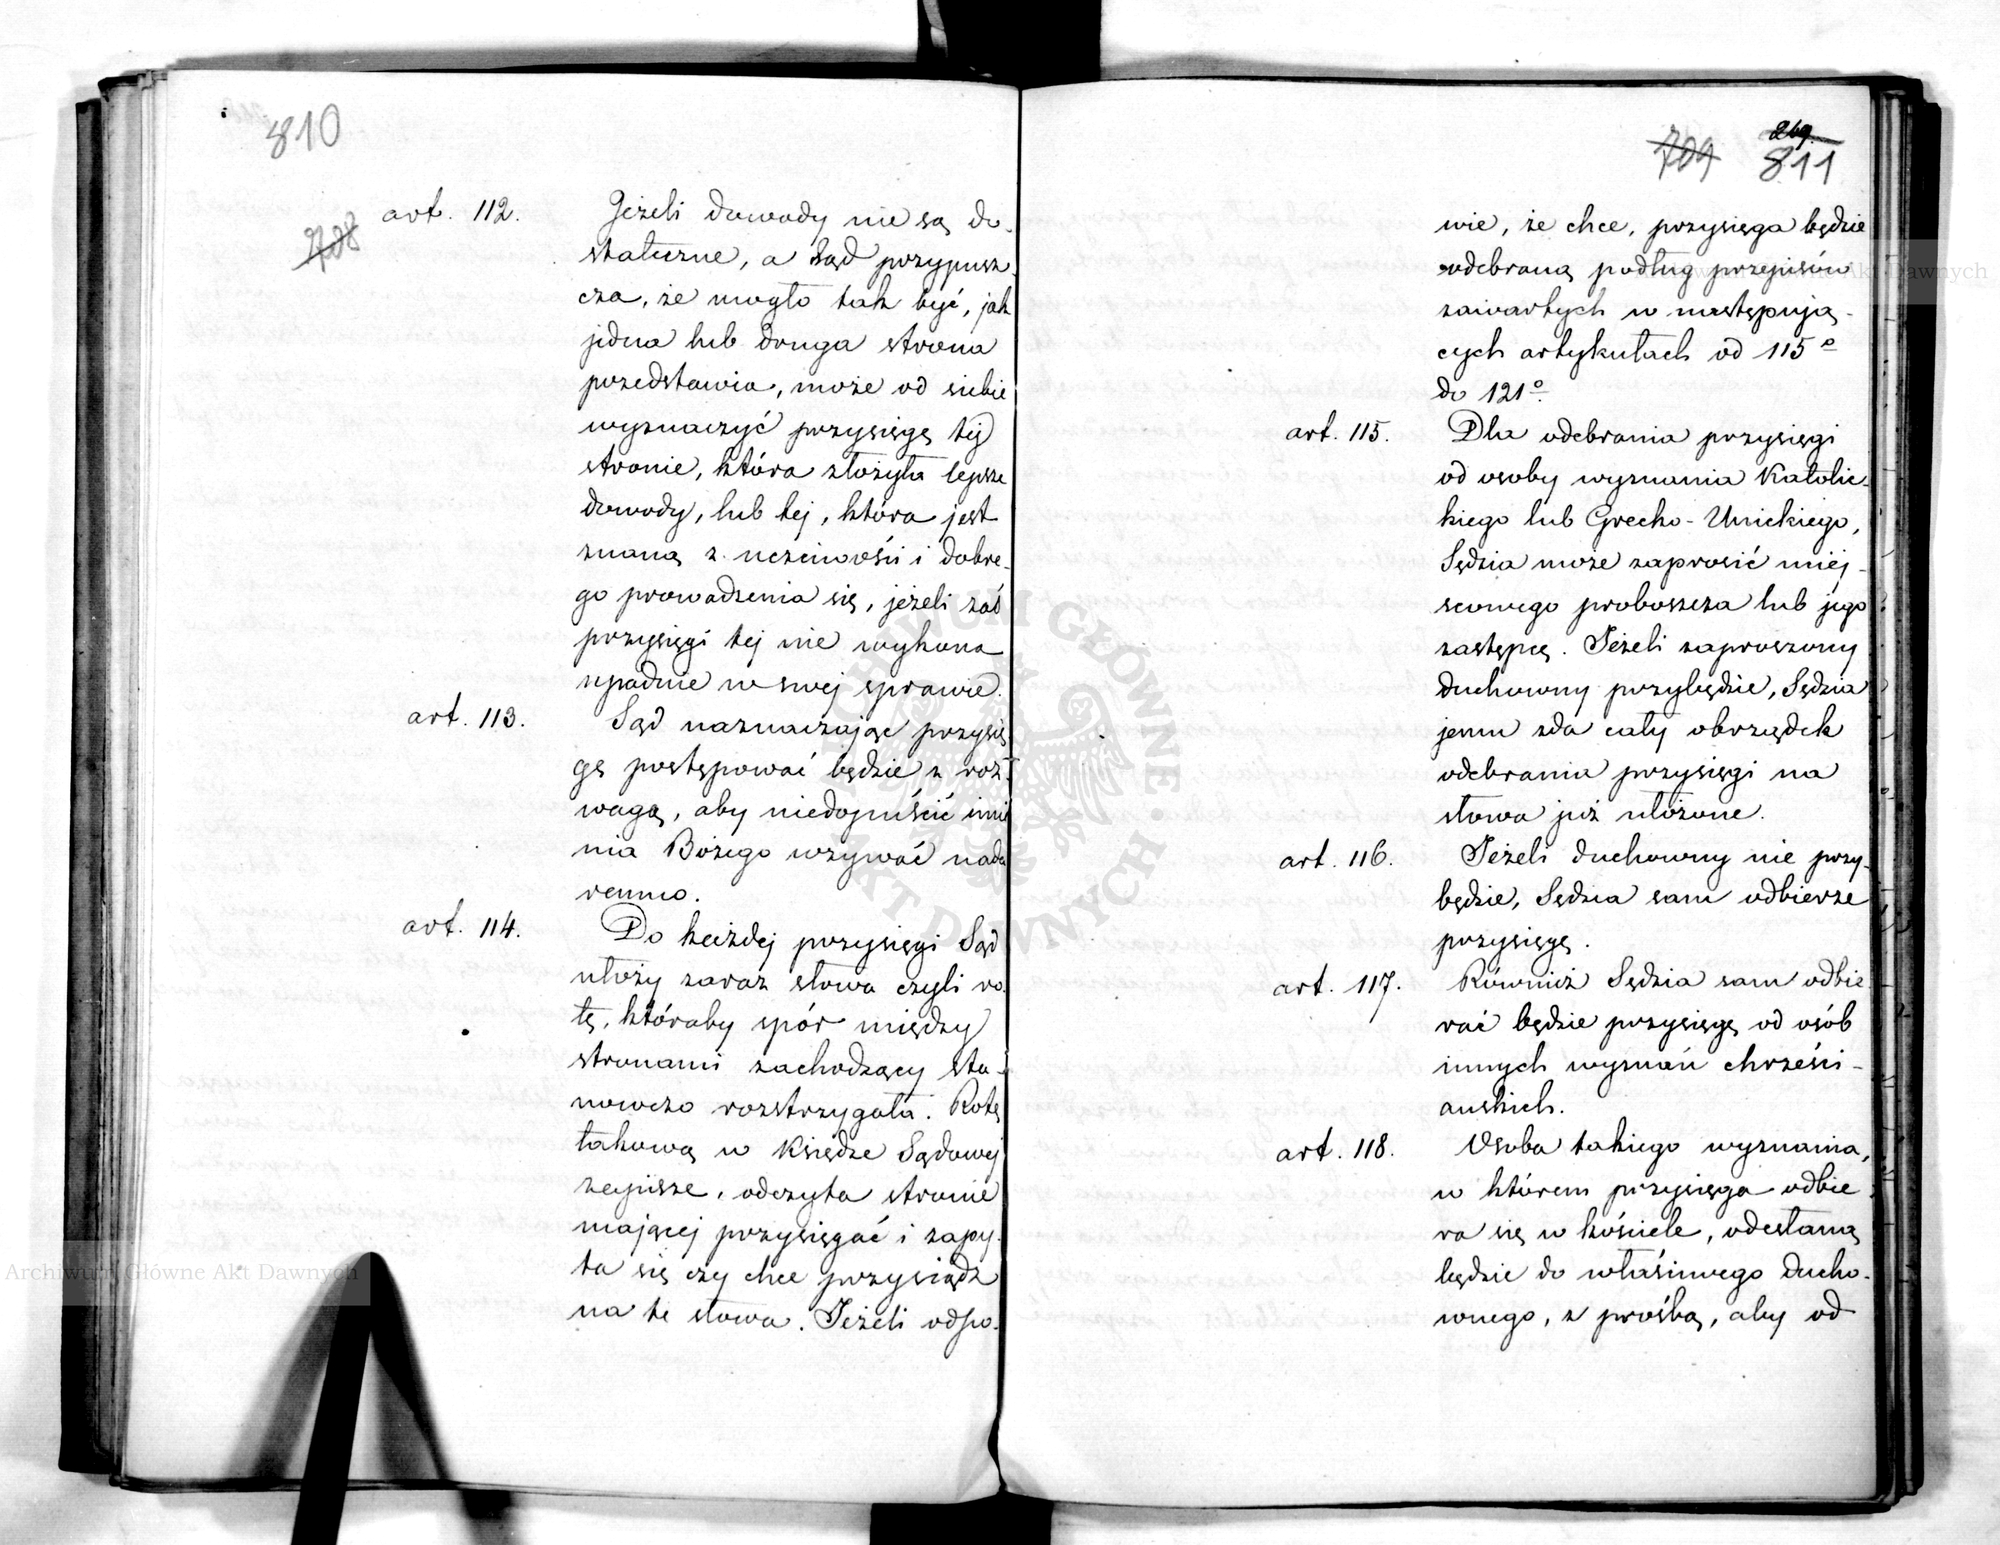 810
708
art. 112. Jeżeli dowody nie są do-
stateczne, a Sąd przypusz-
cza, że mogło tak być, jak
jedna lub druga strona
przedstawia, może od siebie
wyznaczyć przysięgę tej
stronie, która złożyła lepsze
dowody, lub tej, która jest
znaną z uczciwości i dobre-
go prowadzenia się, jeżeli zaś
przysięgi tej nie wykona
upadnie w swej sprawie.
art. 113. Sąd naznaczając przysię
gę postępować będzie z roz-
wagą, aby niedopuścić imie
nia Bożego wzywać nada
remno.
art. 114. Do każdej przysięgi Sąd
ułoży zaraz słowa czyli ro-
tę, któraby spór między
stronami zachodzący sta-
nowczo rozstrzygała. Rotę
takową w Księdze Sądowej
zapisze, odczyta stronie
mającej przysięgać i zapy-
ta się czy chce przysiądz
na te słowa. Jeżeli odpo-
709 269 811
wie, że chce, przysięga będzie
odebraną podług przepisów
zawartych w następują-
cych artykułach od 115º
do 121º.
art. 115. Dla odebrania przysięgi
od osoby wyznania Katolic-
kiego lub Grecko-Unickiego,
Sędzia może zaprosić miej-
scowego proboszcza lub jego
zastępcę. Jeżeli zaproszony
duchowny przybędzie, Sędzia
jemu zda cały obrządek
odebrania przysięgi na
słowa już ułożone.
art. 116. Jeżeli duchowny nie przy-
będzie, Sędzia sam odbierze
przysięgę.
art. 117. Również Sędzia sam odbie
rać będzie przysięgę od osób
innych wyznań chrześci-
ańskich.
art. 118. Osoba takiego wyznania,
w którem przysięga odbie
ra się w kościele, odesłaną
będzie do właściwego ducho-
wnego, z prośbą, aby od
Archiwum Główne Akt Dawnych
Archiwum Główne Akt Dawnych
ARCHIWUM GŁÓWNE AKT DAWNYCH